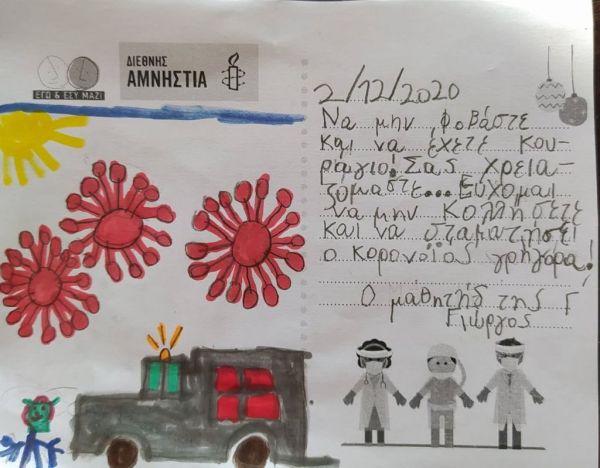 ΕΓΩ & ΕΣΥ ΜΑΖΙ
ΔΙΕΘΝΗΣ
ΑΜΝΗΣΤΙΑ
2/12/2020
Να μην φοβάστε
και να έχετε κου-
ράγιο! Σας χρεια-
ζόμαστε... Εύχομαι
να μην κολλήσετε
και να σταματήσει
ο κορονοϊός γρήγορα!
Ο μαθητής της Γ
Γιώργος